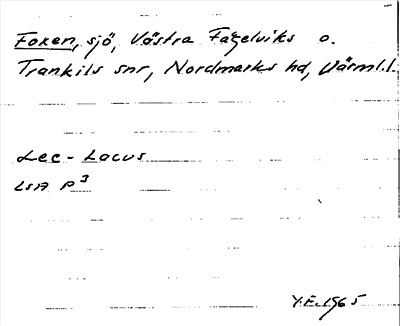 Foxen, sjö, Västra Fågelviks o.
Trankils snr, Nordmarks hd, Värml.l.
Lec - Lacus
LSA P³
Y.F. 1965